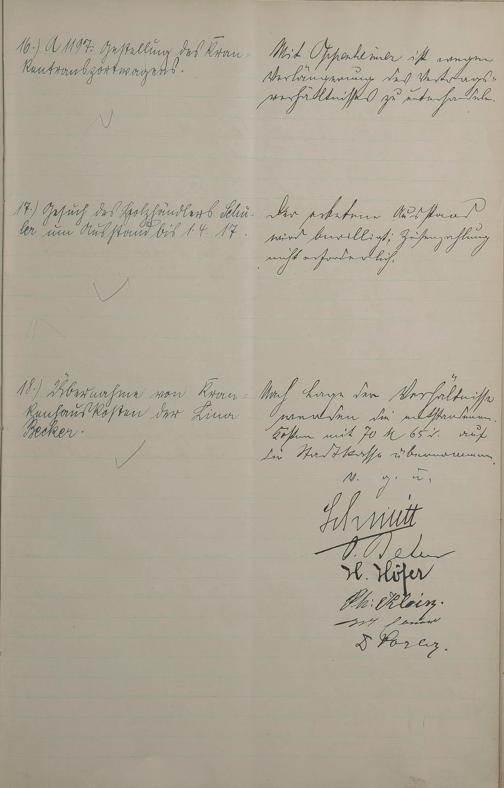 16.) A 1197. Gestellung des Kran-
kentransportwagens.
Mit Oppenheimer ist wegen
Verlängerung des Vertrags-
verhältnisses zu unterhandeln.
17.) Gesuch des Holzhändlers Schu-
ler um Ausstand bis 1.4.17.
Der erbetene Ausstand
wird bewilligt; Zinszahlung
nicht erforderlich.
18.) Übernahme von Kran-
kenhauskosten der Lina
Becker.
Nach Lage der Verhältnisse
werden die entstandenen
Kosten mit 70 M 65 d. auf
die Stadtkasse übernommen.
v. g. u.
Schmitt
H. Höfer
Ph. Klein.